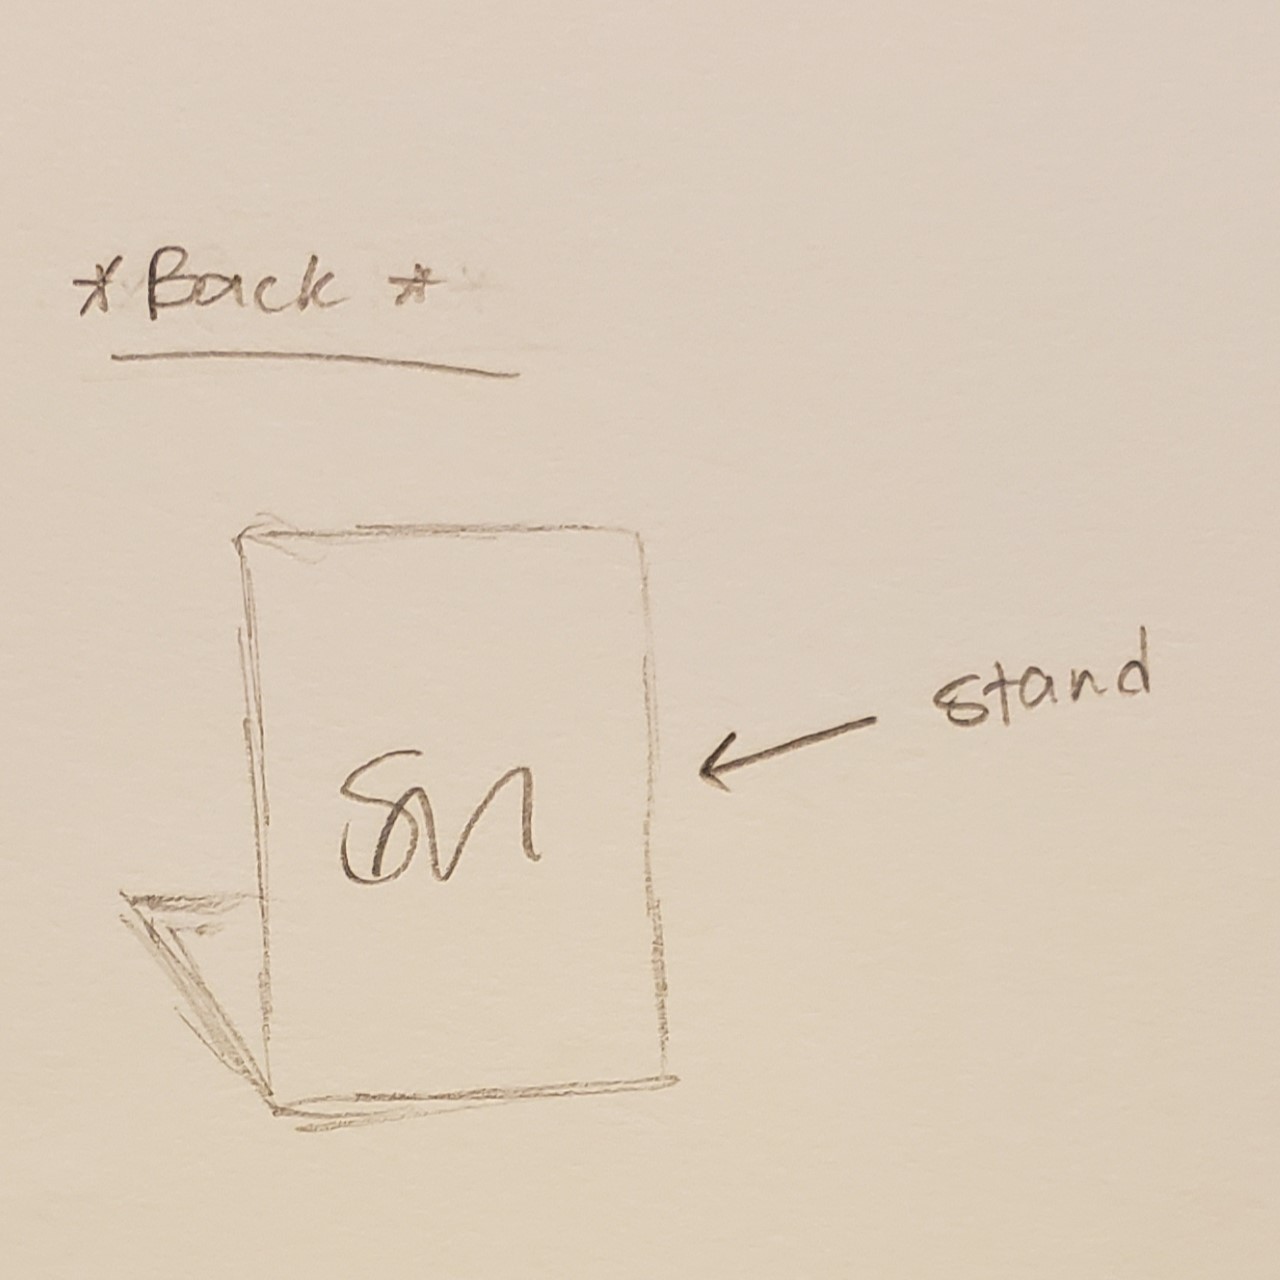 *Back *
stand